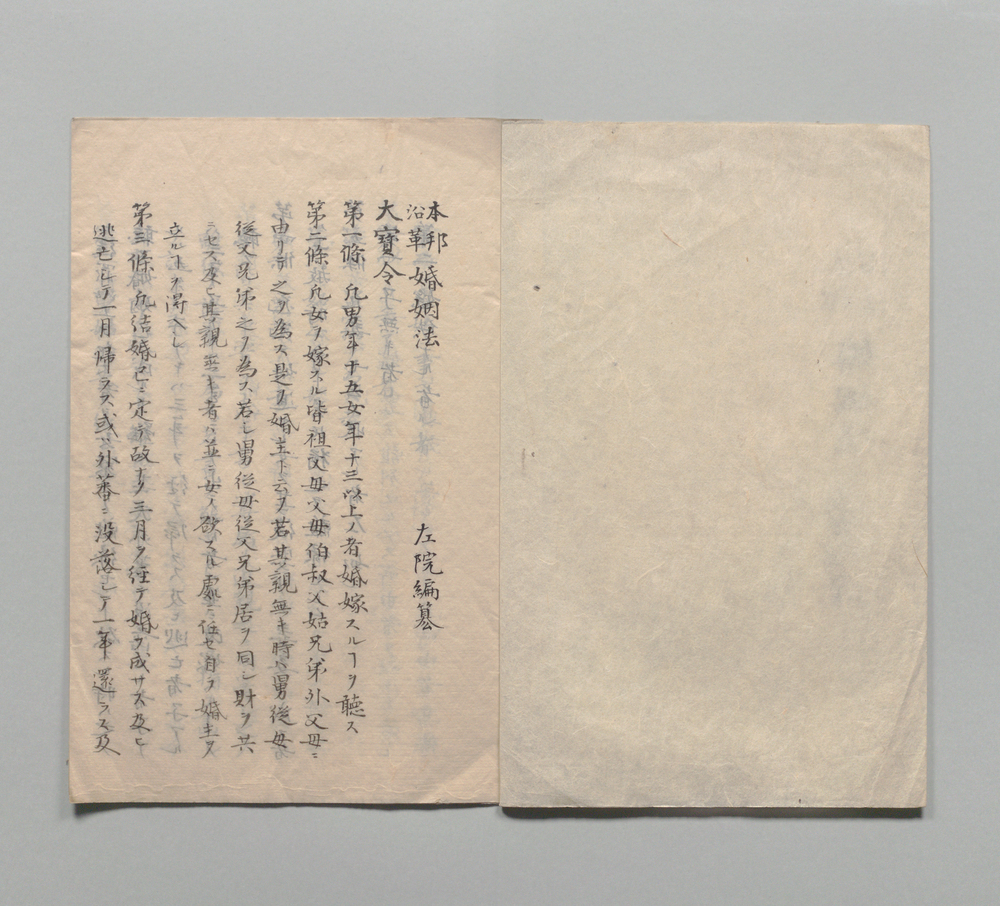 本邦沿革婚姻法
左院編纂
大寳令
第一條 凡男年十五女年十三以上ノ者婚嫁スルヿヲ聴ス
第二條 凡女ヲ嫁スル皆祖父母父母伯叔父姑兄弟外父母ニ
由リテ之ヲ為ス是ヲ婚主ト云フ若其親無キ時ハ舅従母
従父兄弟之ヲ為ス若シ舅従母従父兄弟居ヲ同シ財ヲ共
ニセス及ヒ其親無キ者ハ並ニ女人欲スル處ニ任セ自ラ婚主ヲ
立ルヿヲ得ヘし
第三條 凡結婚已ニ定テ故ナク三月ヲ経テ婚ヲ成サス及ヒ
逃亡シテ一月帰ラス或ハ外蕃ニ没落シテ一年還ラス及